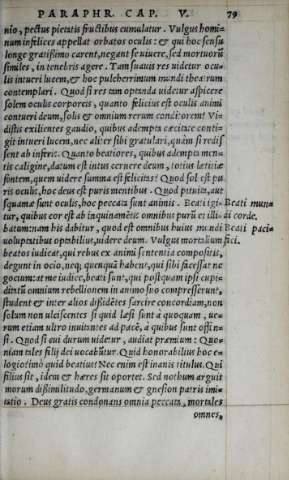 PARAPHR. CAP. V. 79
nio, pectus pietatis fructibus cumulatur. Vulgus homi-
num infelices appellat orbatos oculis: & qui hoc sensu
longe gratissimo carent, negant se uiuere, sed mortuorũ
similes, in tenebris agere. Tam suauis res uidetur ocu-
lis intueri lucem, & hoc pulcherrimum mundi theatrum
contemplari. Quod si res tam optanda uidetur aspicere
solem oculis corporeis, quanto felicius est oculis animi
contueri deum, solis & omnium rerum conditorem? Vi-
distis exilientes gaudio, quibus adempta cæcitate conti-
git intueri lucem, nec aliter sibi gratulari, quàm si redis
sent ab inferis. Quanto beatiores, quibus adempta men-
tis caligine, datum est intus cernere deum, totius lætitiæ
fontem, quem uidere summa est felicitas? Quod sol est pu
ris oculis, hoc deus est puris mentibus. Quod pituita, aut
squamæ sunt oculis, hoc peccata sunt animis. Beati igi-
Beati mun
tur, quibus cor est ab inquinamẽtis omnibus purũ et illi-
di corde.
batum: nam his dabitur, quod est omnibus huius mundi
Beati paci-
uoluptatibus optabilius, uidere deum. Vulgus mortalium
fici.
beatos iudicat, qui rebus ex animi sententia compositis,
degunt in ocio, neq; quenquã habent, qui sibi facessat ne
gocium: at me iudice, beati sunt, qui postquam ipsi cupi-
ditatũ omnium rebellionem in animo suo compresserunt,
student & inter alios dissidẽtes sarcire concordiam, non
solum non ulciscentes si quid læsi sunt à quoquam, ue-
rum etiam ultro inuitantes ad pacẽ, à quibus sunt offen-
si. Quod si cui durum uidetur, audiat præmium: Quo-
niam tales filij dei uocabũtur. Quid honorabilius hoc e-
logio? imò quid beatius? Nec enim est inanis titulus. Qui
filius sit, idem & hæres sit oportet. Sed nothum arguit
morum dissimilitudo, germanum & gnesion patris imi-
tatio. Deus gratis condonans omnia peccata, mortales
omnes,